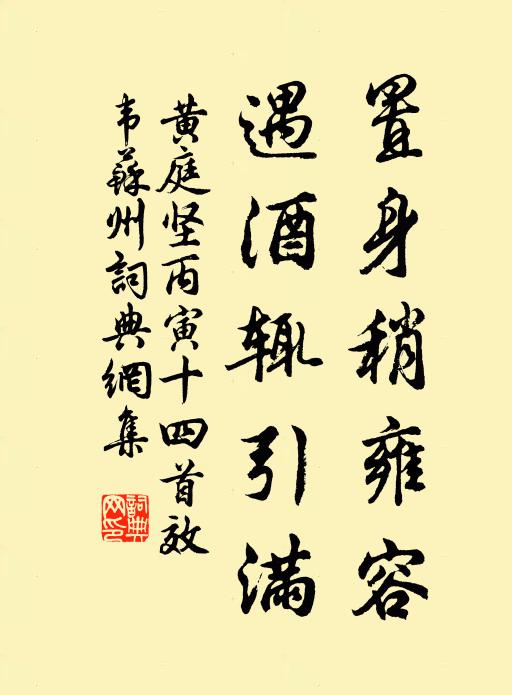 置身稍雍容
遇酒辄引满
黄庭坚丙寅十四首效
韦蘇州詞典網集
詞典
网印